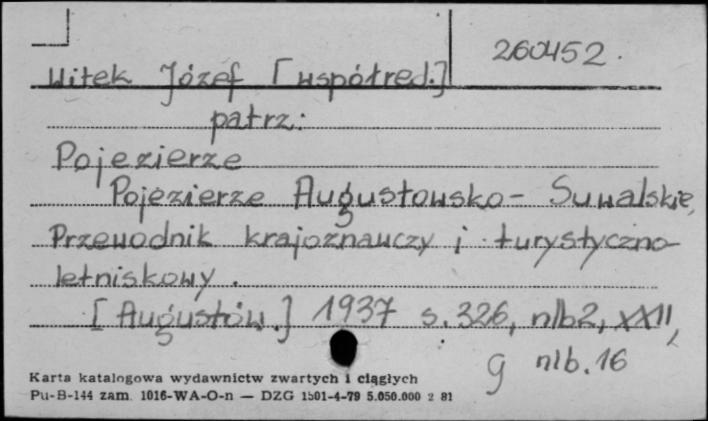 260452.
Witek Józef [współred.]
patrz:
Pojezierze
Pojezierze Augustowsko-Suwalskie,
Przewodnik krajoznawczy i turystyczno-
letniskowy.
[Augustów.] 1937 s. 326, nlb2, XXII,
g nlb. 16
Karta katalogowa wydawnictw zwartych i ciągłych
Pu-B-144 zam. 1016-WA-O-n — DZG 1501-4-79 5.050.000 2 81